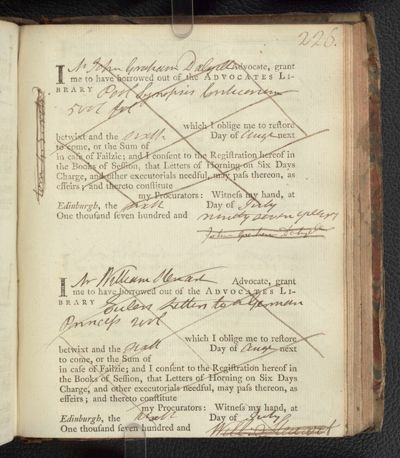 226.
I Mr John Graham Dalyell Advocate, grant
me to have borrowed out of the ADVOCATES LI-
BRARY Pool Synopsis Criticorum
5 vol fol
which I oblige me to restore
betwixt and the sixth Day of Augt next
to come, or the Sum of
in case of Failzie; and I consent to the Registration hereof in
the Books of Session, that Letters of Horning on Six Days
Charge, and other executorials needful, may pass thereon, as
effeirs; and thereto constitute
my Procurators: Witness my hand, at
Edinburgh, the sixth Day of July
One thousand seven hundred and ninety seven years
John Graham Dalyell
I Mr William Advocate, grant
me to have borrowed out of the ADVOCATES LI-
BRARY Eulers Letters to a German
Princess 2 vol
which I oblige me to restore
betwixt and the sixth Day of Augt next
to come, or the Sum of
in case of Failzie; and I consent to the Registration hereof in
the Books of Session, that Letters of Horning on Six Days
Charge, and other executorials needful, may pass thereon, as
effeirs; and thereto constitute
my Procurators: Witness my hand, at
Edinburgh, the sixth Day of July
One thousand seven hundred and